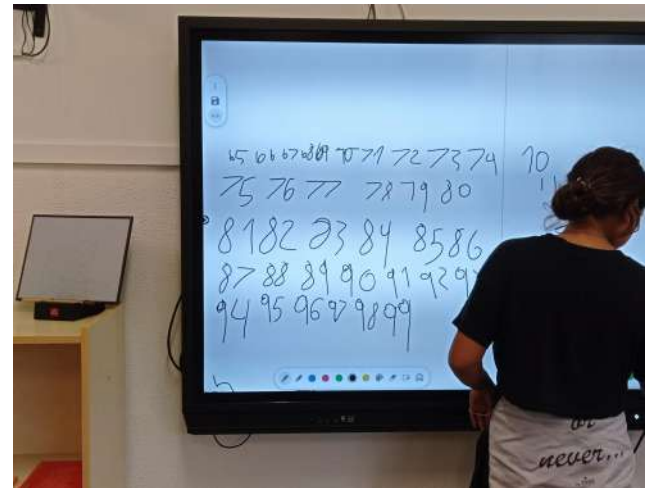 65 66 67 68 69 70 71 72 73 74
75 76 77 78 79 80
81 82 83 84 85 86
87 88 89 90 91 92
94 95 96 97 98 99
10
or
never...